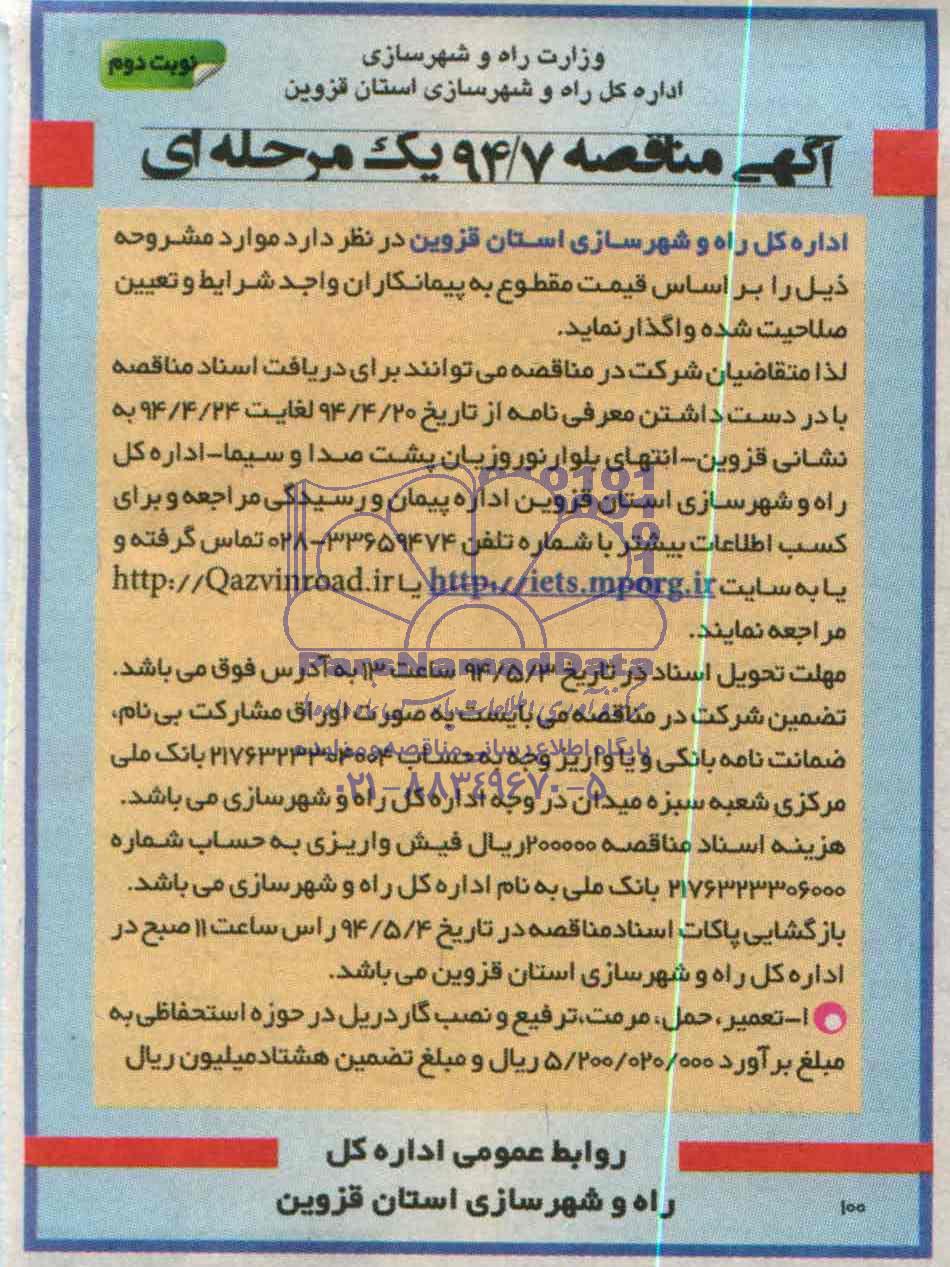 وزارت راه و شهرسازی
اداره کل راه و شهرسازی استان قزوین
نوبت دوم
آگهی مناقصه ۹۴/۷ یک مرحله ای
اداره کل راه و شهرسازی استان قزوین در نظر دارد موارد مشروحه
ذیل را بر اساس قیمت مقطوع به پیمانکاران واجد شرایط و تعیین
صلاحیت شده واگذار نماید.
لذا متقاضیان شرکت در مناقصه می توانند برای دریافت اسناد مناقصه
با در دست داشتن معرفی نامه از تاریخ ۹۴/۴/۲۰ لغایت ۹۴/۴/۲۴ به
نشانی قزوین-انتهای بلوار نوروزیان پشت صدا و سیما-اداره کل
راه و شهرسازی استان قزوین اداره پیمان و رسیدگی مراجعه و برای
کسب اطلاعات بیشتر با شماره تلفن ۳۳۶۵۹۴۷۴-۰۲۸ تماس گرفته و
یا به سایت http://iets.mporg.ir یا http://Qazvinroad.ir
مراجعه نمایند.
مهلت تحویل اسناد در تاریخ ۹۴/۵/۳ ساعت ۱۳ به آدرس فوق می باشد.
تضمین شرکت در مناقصه می بایست به صورت اوراق مشارکت بی نام،
ضمانت نامه بانکی و یا واریز وجه به حساب بانک ملی
مرکزی شعبه سبزه میدان در وجه اداره کل راه و شهرسازی می باشد.
هزینه اسناد مناقصه ۲۰۰۰۰۰ریال فیش واریزی به حساب شماره
۲۱۷۶۳۲۳۳۰۶۰۰۰ بانک ملی به نام اداره کل راه و شهرسازی می باشد.
بازگشایی پاکات اسنادمناقصه در تاریخ ۹۴/۵/۴ راس ساعت ۱۱ صبح در
اداره کل راه و شهرسازی استان قزوین می باشد.
۱-تعمیر، حمل، مرمت،ترفیع و نصب گاردریل در حوزه استحفاظی به
مبلغ برآورد ۵/۲۰۰/۰۲۰/۰۰۰ ریال و مبلغ تضمین هشتادمیلیون ریال
روابط عمومی اداره کل
راه و شهرسازی استان قزوین
۱۰۰
ParsNamadData
پایگاه اطلاع رسانی مناقصه و مزایده
۰۲۱-۸۸۳۴۹۶۷۰-۵